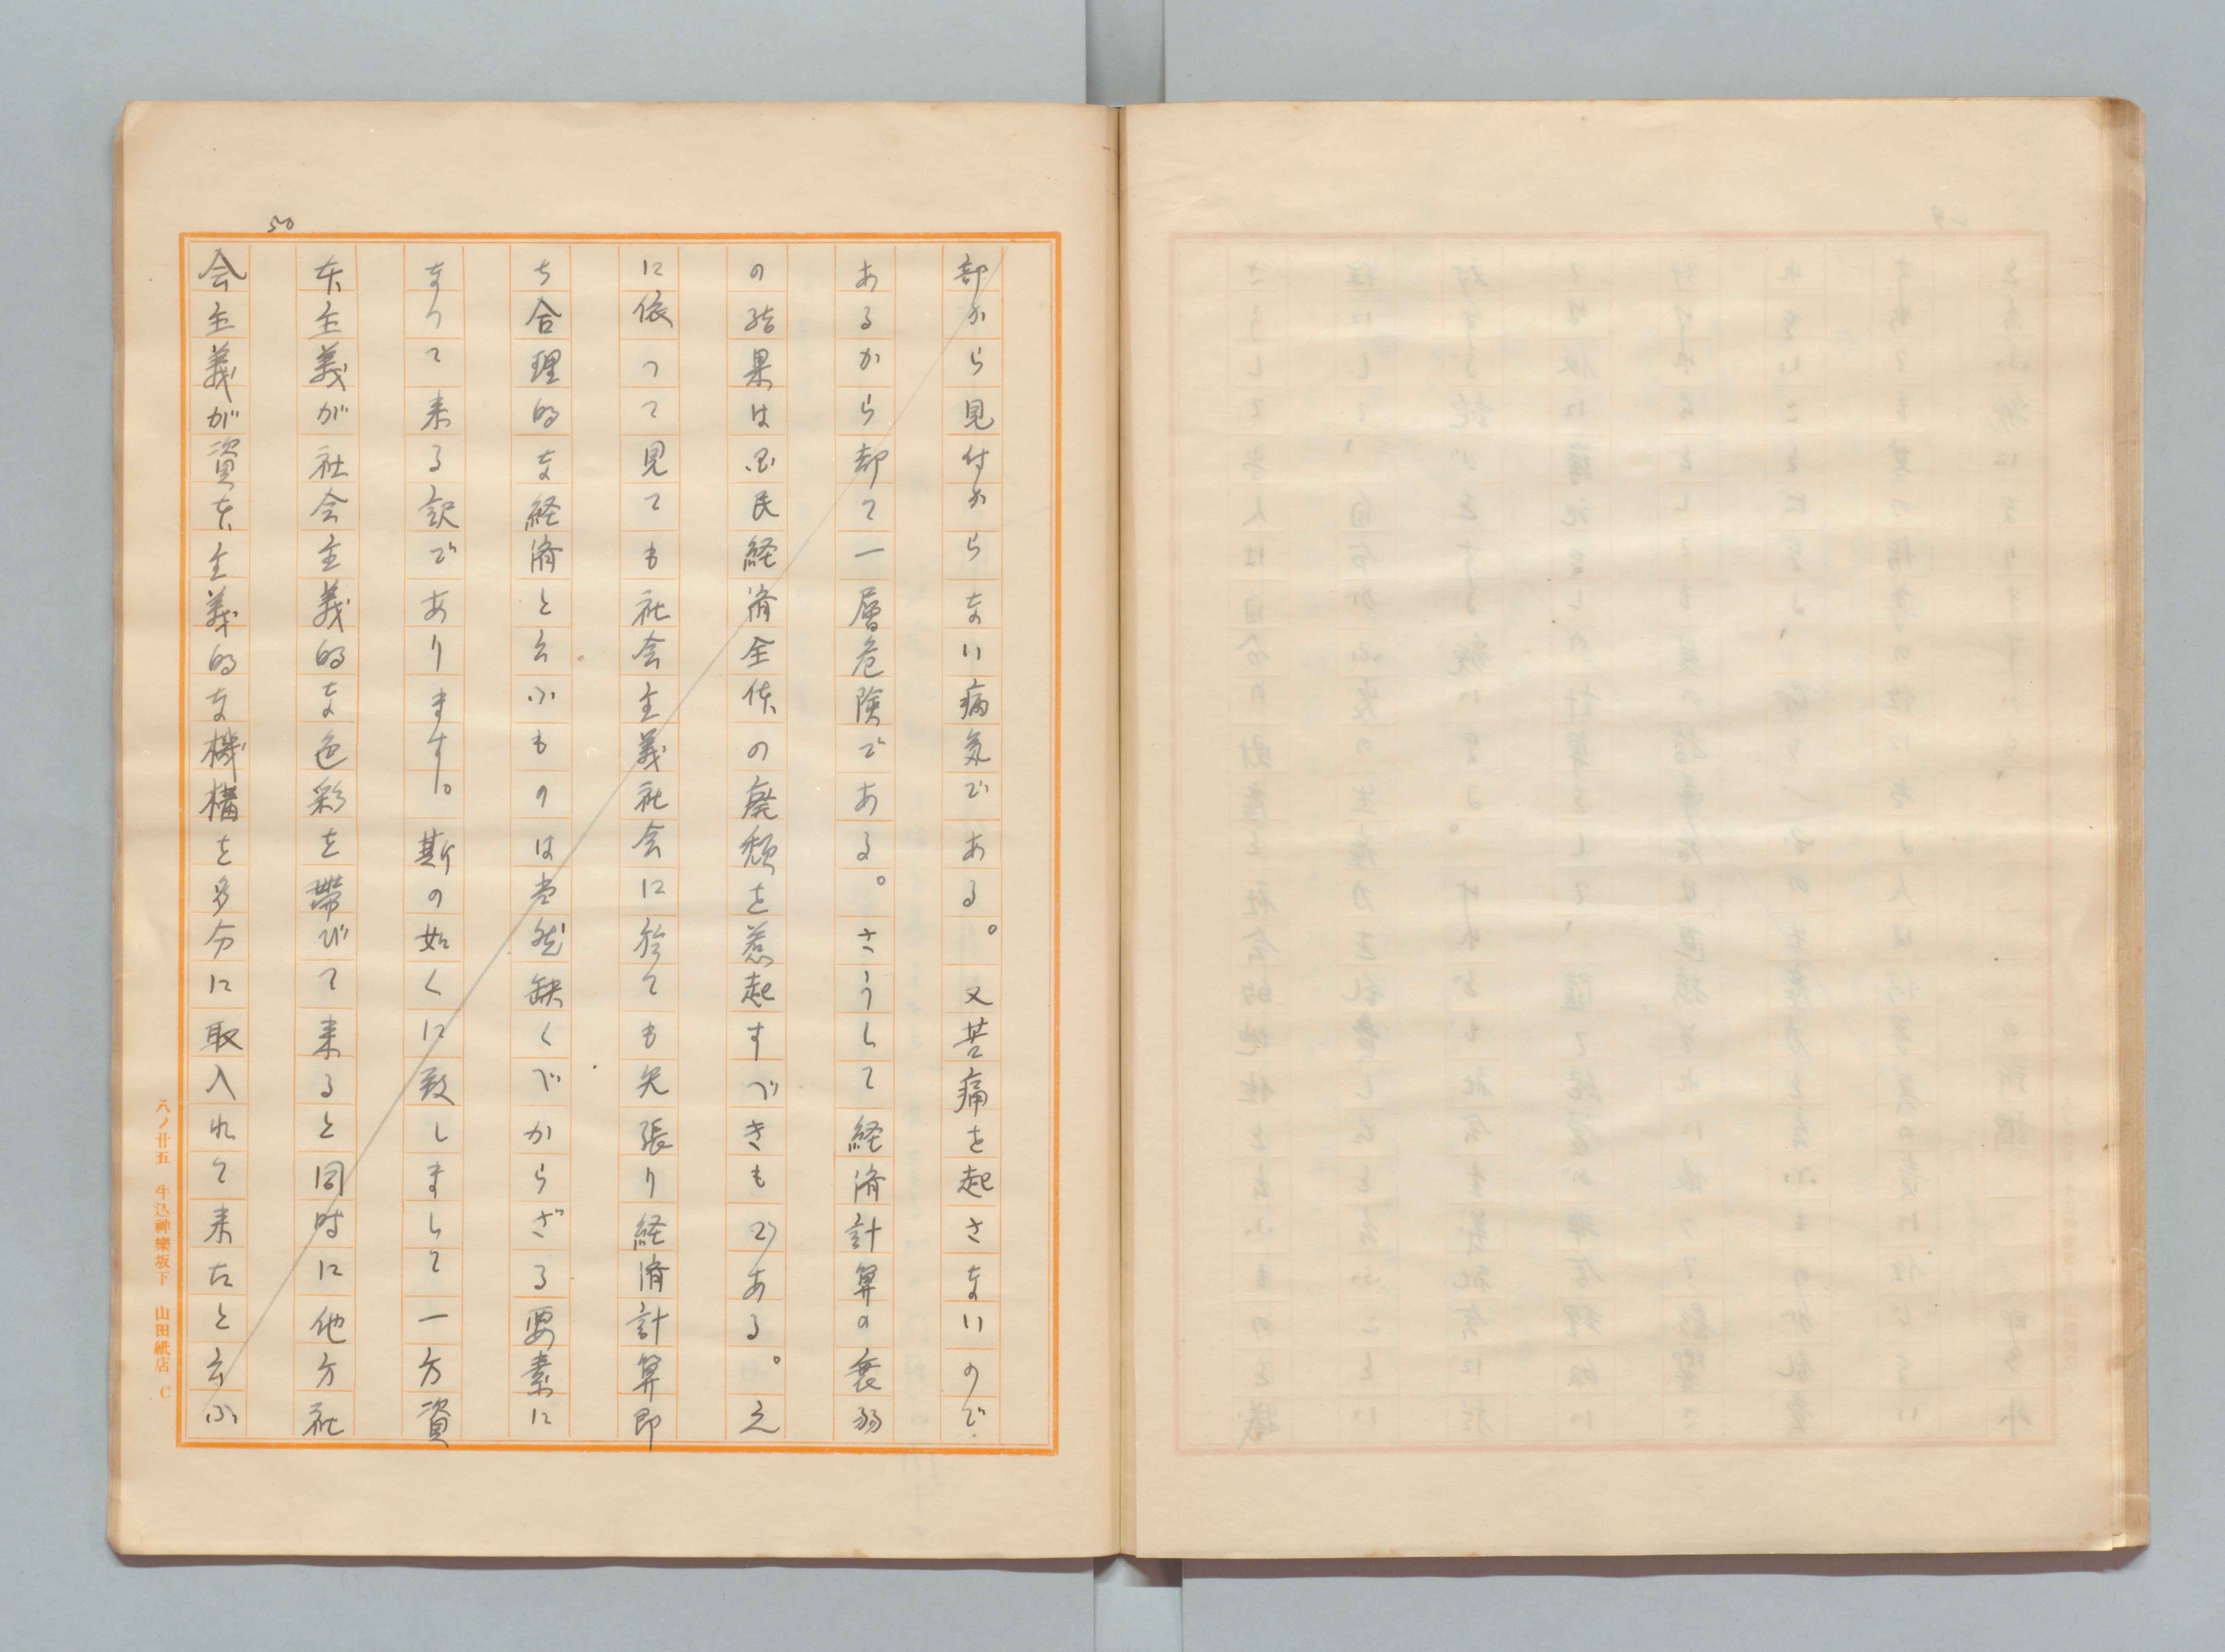 50
部から見付からない病気である。又苦痛を起さないので
あるから却て一層危険である。さうして経済計算の衰弱
の結果は国民経済全体の廃頽を惹起すべきものである。之
に依つて見ても社会主義社会に於ても矢張り経済計算即
ち合理的な経済と云ふものは当然缺くべからざる要素に
なつて来る訳であります。斯の如くに致しまして一方資
本主義が社会主義的な色彩を帯びて来ると同時に他方社
会主義が資本主義的な機構を多分に取入れて来たと云ふ
八ノ廿五 牛込神樂坂下 山田紙店 C